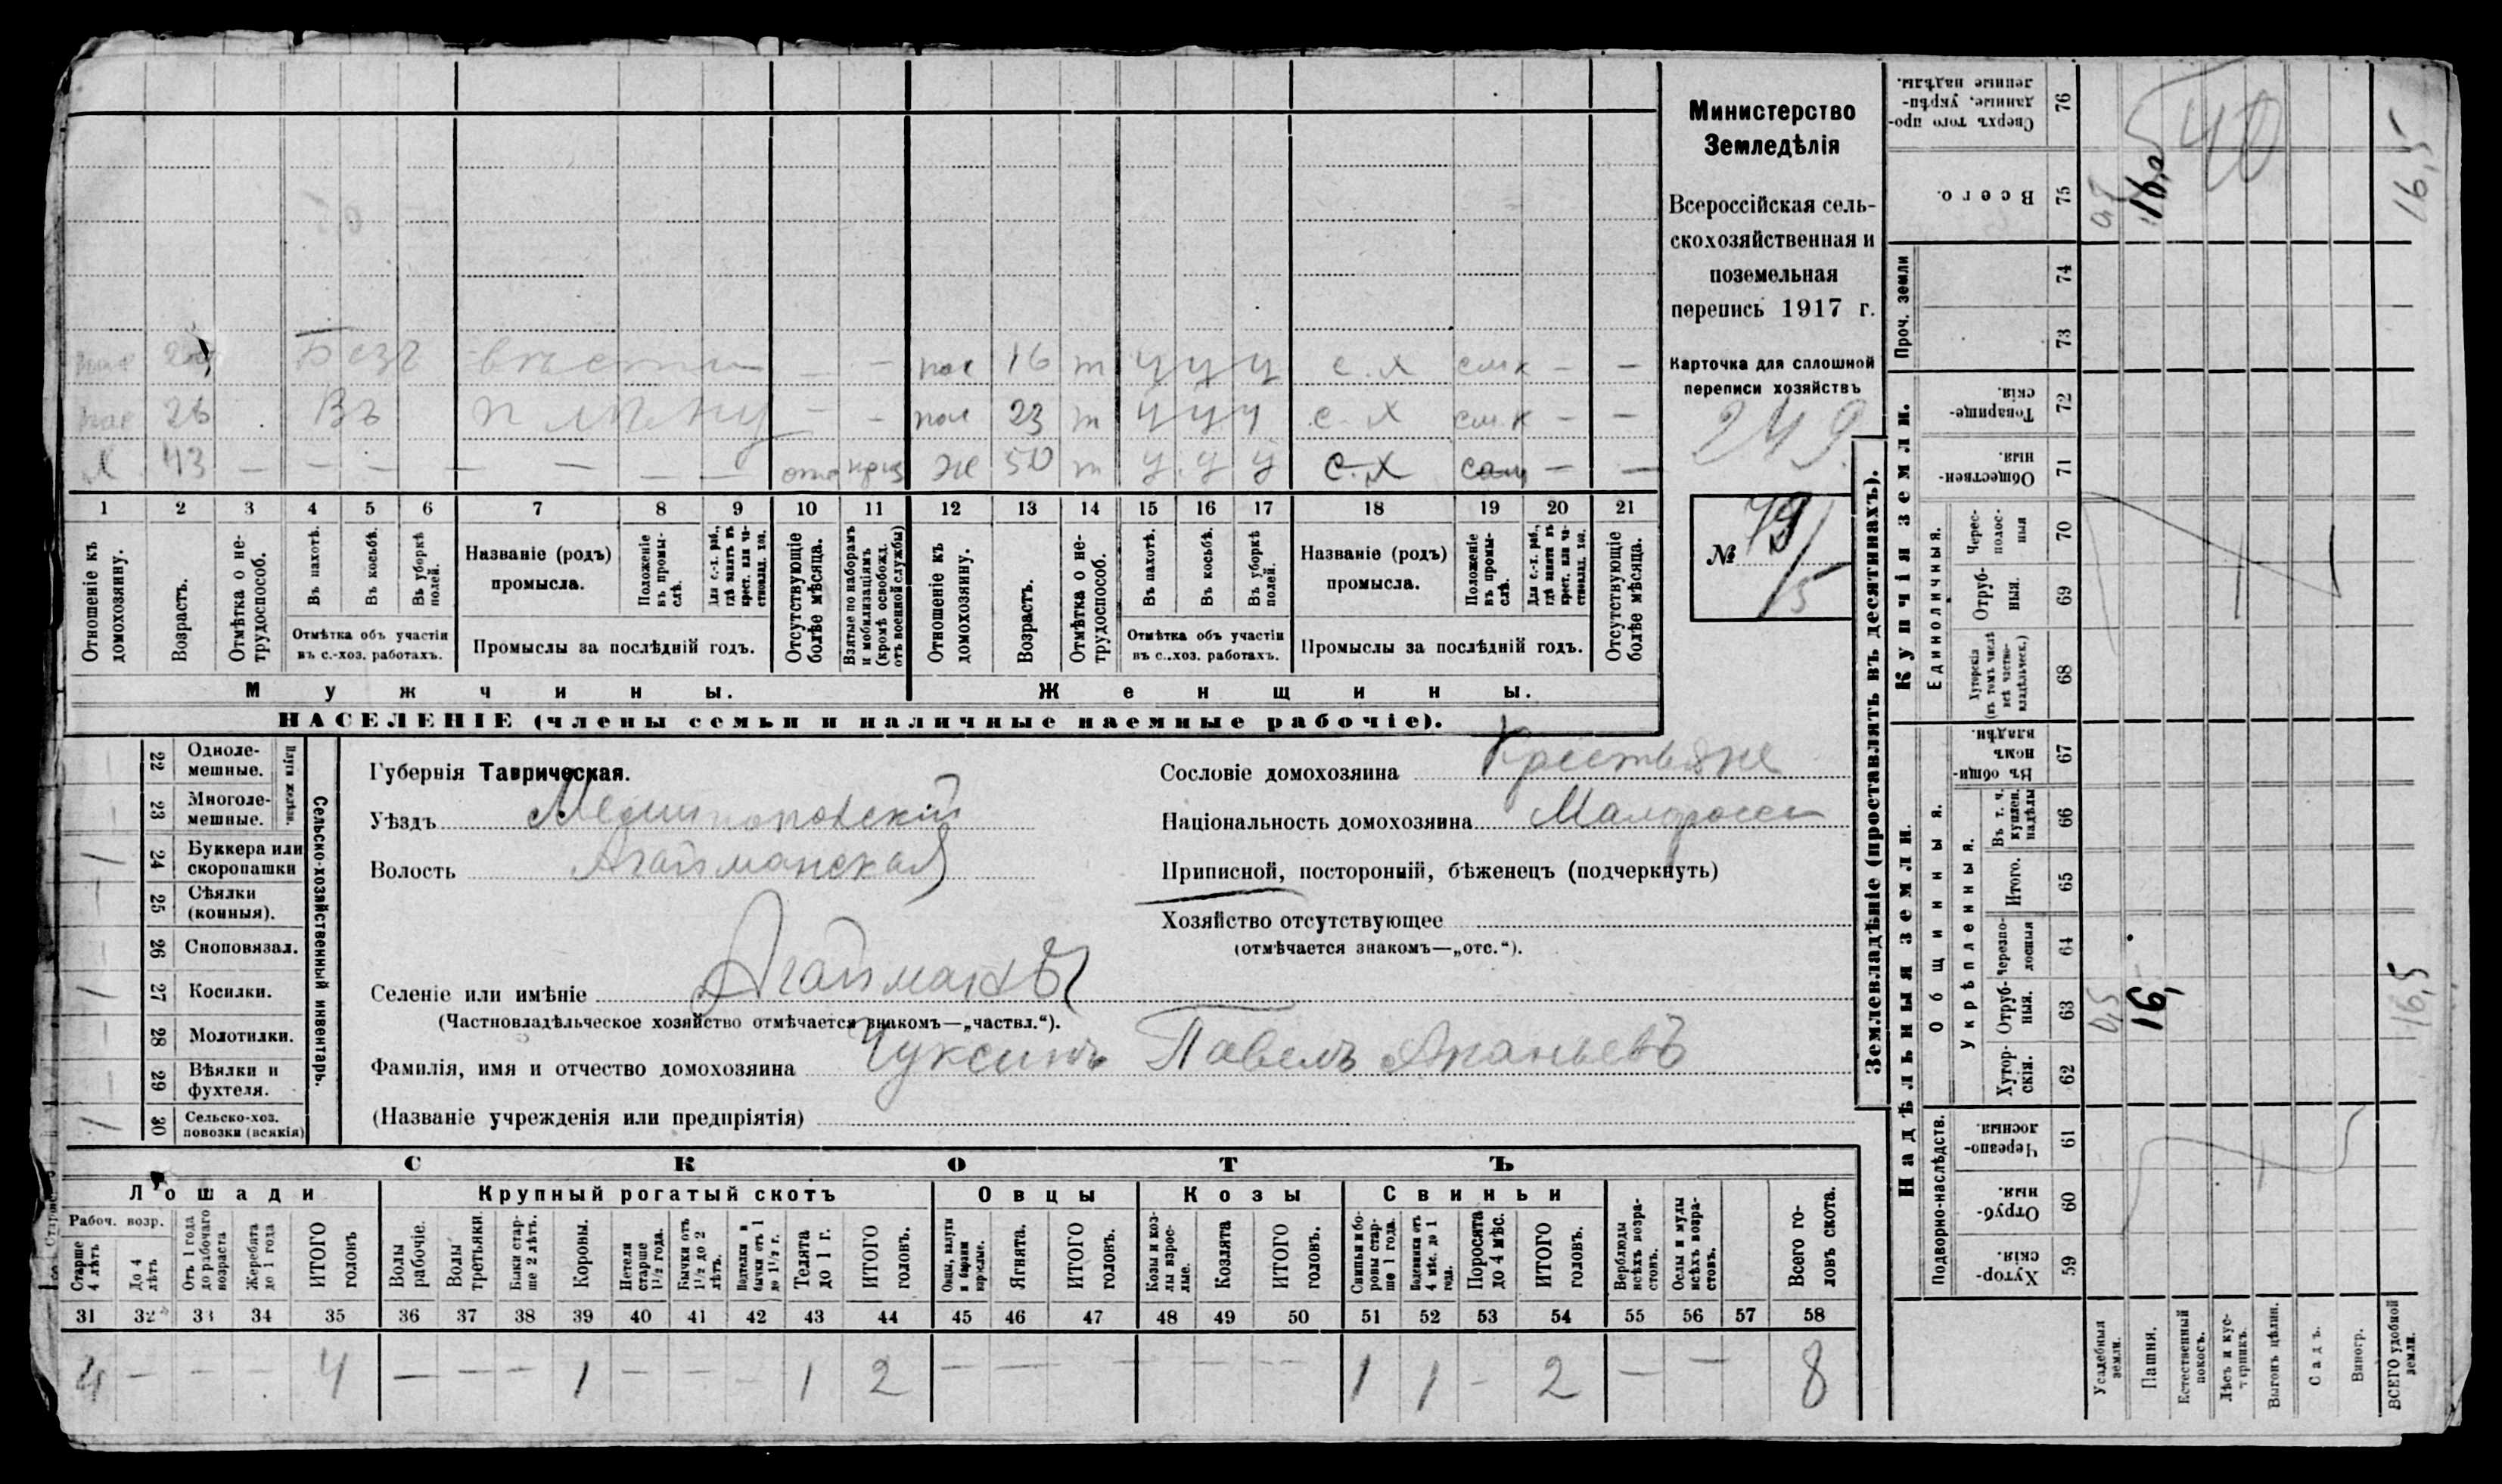 Министерство
Земледѣлія
Всероссійская сель-
скохозяйственная и
поземельная
перепись 1917 г.
Карточка для сплошной
переписи хозяйствъ
249
№ 79/5
Безъ вѣсти — — пас 16 т ч ч ч с.х — —
26 Въ плѣну — — пас 23 т ч ч ч с.х — —
Х 43 — — — — — — — — ж 50 т у у у с.х — —
1 2 3 4 5 6 7 8 9 10 11 12 13 14 15 16 17 18 19 20 21
Отношеніе къ домохозяину.
Возрастъ.
Отмѣтка о не-трудоспособ.
Въ пахотѣ.
Въ косьбѣ.
Въ уборкѣ полей.
Отмѣтка объ участіи
въ с.-хоз. работахъ.
Названіе (родъ)
промысла.
Положеніе въ промы-слѣ.
Для с.-х. раб., гдѣ занятъ въ крест. или ча-ствовлад. хоз.
Промыслы за послѣдній годъ.
Отсутствующіе болѣе мѣсяца.
Взятые по наборамъ и мобилизаціямъ (кромѣ освобожд. отъ военной службы)
Отношеніе къ домохозяину.
Возрастъ.
Отмѣтка о не-трудоспособ.
Въ пахотѣ.
Въ косьбѣ.
Въ уборкѣ полей.
Отмѣтка объ участіи
въ с..хоз. работахъ.
Названіе (родъ)
промысла.
Положеніе въ промы-слѣ.
Для с.-х. раб., гдѣ занята въ крест. или ча-ствовлад. хоз.
Промыслы за послѣдній годъ.
Отсутствующіе болѣе мѣсяца.
Мужчины.
Женщины.
НАСЕЛЕНІЕ (члены семьи и наличные наемные рабочіе).
Сельско-хозяйственный инвентарь.
Плуги желѣзн.
22 Одноле-мешные.
23 Многоле-мешные.
24 Буккера или скоропашки
25 Сѣялки (конныя).
26 Сноповязал.
27 Косилки.
28 Молотилки.
29 Вѣялки и фухтеля.
30 Сельско-хоз. повозки (всякія)
Губернія Таврическая.
Уѣздъ Мелитопольскій
Волость Агайманская
Селеніе или имѣніе Агайманъ
(Частновладѣльческое хозяйство отмѣчается знакомъ—„частвл.“).
Фамилія, имя и отчество домохозяина Чуксинъ Павелъ Ананьевъ
(Названіе учрежденія или предпріятія)
Сословіе домохозяина Крестьяне
Національность домохозяина Малоросси
Приписной, посторонній, бѣженецъ (подчеркнуть)
Хозяйство отсутствующее
(отмѣчается знакомъ—„отс.“).
СКОТЪ
Лошади
Крупный рогатый скотъ
Овцы
Козы
Свиньи
Рабоч. возр.
Старше 4 лѣтъ
До 4 лѣтъ
Отъ 1 года до рабочаго возраста
Жеребята до 1 года
ИТОГО головъ
Волы рабочіе.
Волы третьяки.
Быки стар-ше 2 лѣтъ.
Коровы.
Нетели старше 1½ года.
Бычки отъ 1½ до 2 лѣтъ.
Подтелки и бычки отъ 1 до 1½ г.
Телята до 1 г.
ИТОГО головъ.
Овцы, валухи и бараны взрослые.
Ягнята.
ИТОГО головъ.
Козы и коз-лы взрос-лые.
Козлята
ИТОГО головъ.
Свиньи и бо-ровы стар-ше 1 года.
Подсвинки отъ 4 мѣс. до 1 года.
Поросята до 4 мѣс.
ИТОГО головъ.
Верблюды всѣхъ возра-стовъ.
Ослы и мулы всѣхъ возра-стовъ.
Всего го-ловъ скота.
31 32 33 34 35 36 37 38 39 40 41 42 43 44 45 46 47 48 49 50 51 52 53 54 55 56 57 58
4 — — — 4 — — — 1 — — — 1 2 — — — — — — 1 1 — 2 — — 8
Землевладѣніе (проставлять въ десятинахъ).
Надѣльныя земли.
Купчія земли.
Проч. земли
Подворно-наслѣдств.
Общинныя.
Укрѣпленныя.
Единоличныя.
Сверхъ того про-данные, укрѣп-ленные надѣлы. 76
Всего. 75
74
73
Товарище-скія. 72
Обществен-ныя. 71
Черес-полос-ныя 70
Отруб-ныя. 69
Хуторскія (въ томъ числѣ всѣ частно-владѣльческ.) 68
Въ общин-номъ владѣн. 67
Въ т. ч. куплен. надѣлы 66
Итого. 65
Черезпо-лосныя 64
Отруб-ныя. 63
Хутор-скія. 62
Черезпо-лосныя. 61
Отруб-ныя. 60
Хутор-скія. 59
Усадебныя земли.
Пашня.
Естественный покосъ.
Лѣсъ и кус-тарникъ.
Выгонъ цѣлин.
Садъ.
Виногр.
ВСЕГО удобной земли.
40
16,5
0,5
16,
16,5